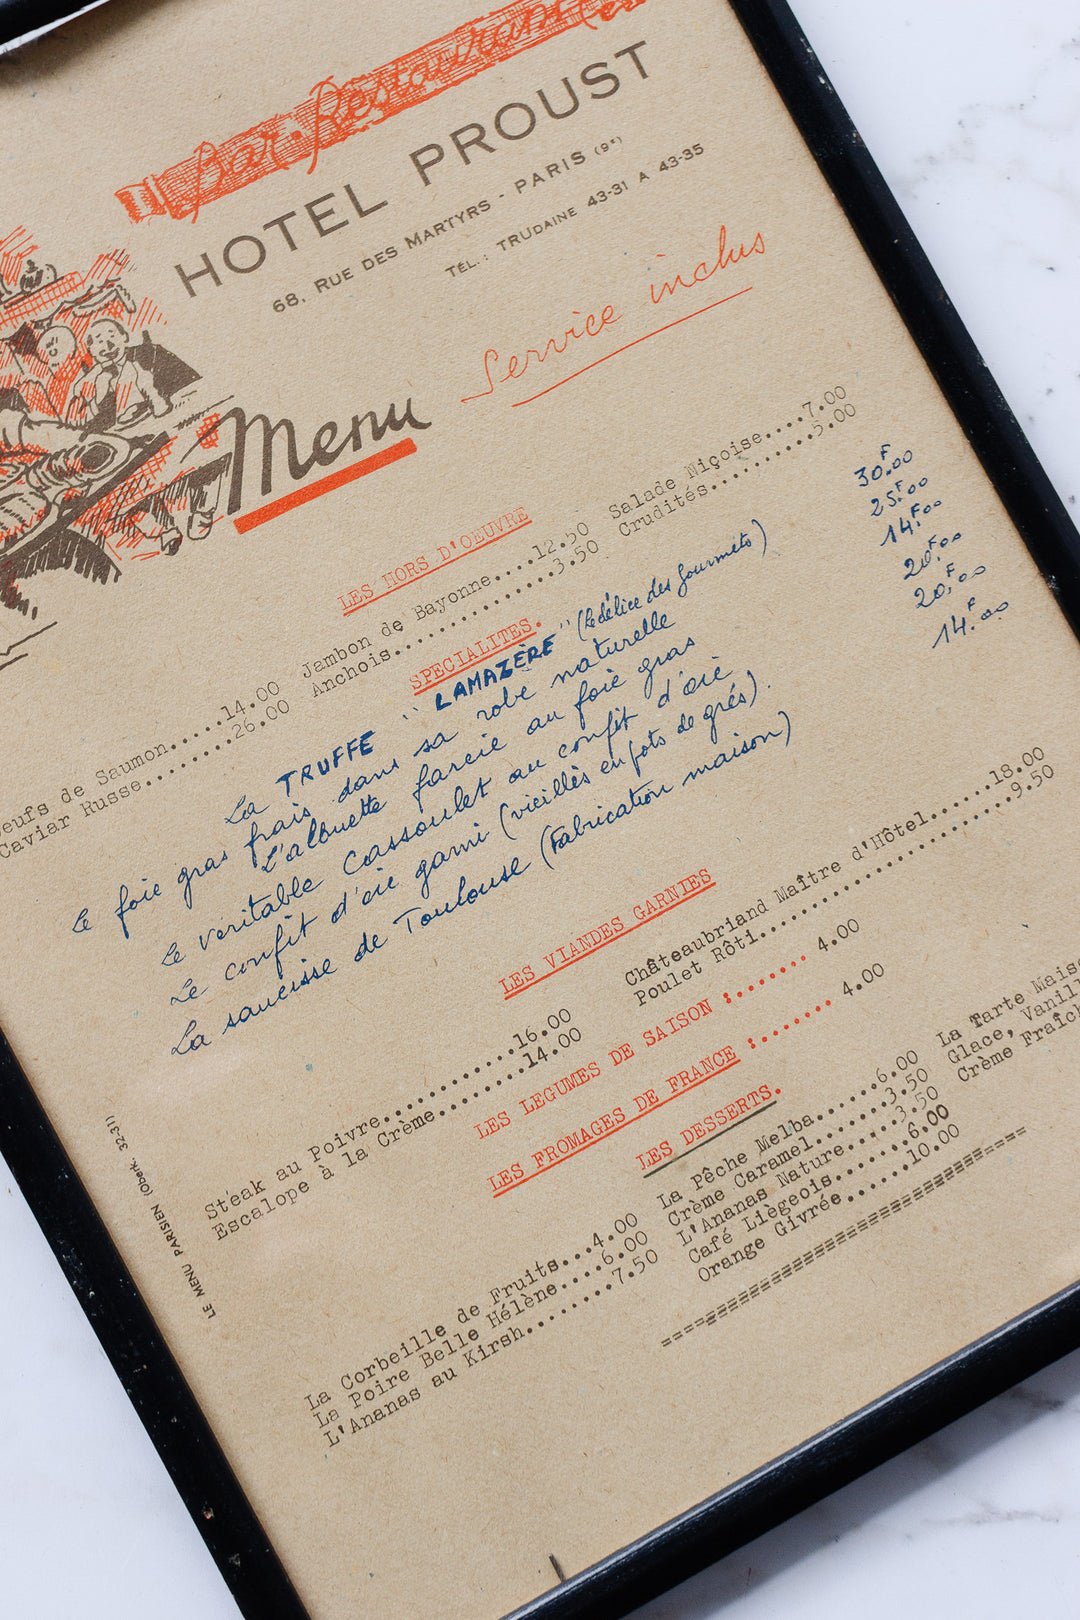 Bar-Restaurant
HOTEL PROUST
68, RUE DES MARTYRS - PARIS (9e)
TÉL.: TRUDAINE 43-31 A 43-35
Service inclus
Menu
LES HORS D'OEUVRE
eufs de Saumon.....14.00 Jambon de Bayonne....12.50 Salade Miçoise....7.00
Caviar Russe........26.00 Anchois.............3.50 Crudités..........5.00
SPECIALITES.
La TRUFFE "LAMAZÈRE" (le délice des gourmets) 30F.00
Le foie gras frais dans sa robe naturelle 25F.00
L'alouette farcie au foie gras 14F.00
Le véritable cassoulet au confit d'oie 20F.00
Le confit d'oie garni (vieillès en pots de grés). 20F.00
La saucisse de Toulouse (Fabrication maison) 14F.00
LES VIANDES GARNIES
Steak au Poivre............16.00 Châteaubriand Maître d'Hôtel......18.00
Escalope à la Crème........14.00 Poulet Rôti.......................9.50
LES LEGUMES DE SAISON :....... 4.00
LES FROMAGES DE FRANCE :....... 4.00
LES DESSERTS.
La Corbeille de Fruits...4.00 La Pêche Melba......6.00 La Tarte Mais
La Poire Belle Hélène....6.00 Crème Caramel.......3.50 Glace, Vanill
L'Ananas au Kirsh........7.50 L'Ananas Nature.....3.50 Crème Fraîch
Café Liègeois.......6.00
Orange Givrée......10.00
LE MENU PARISIEN (Oberk. 32-31)